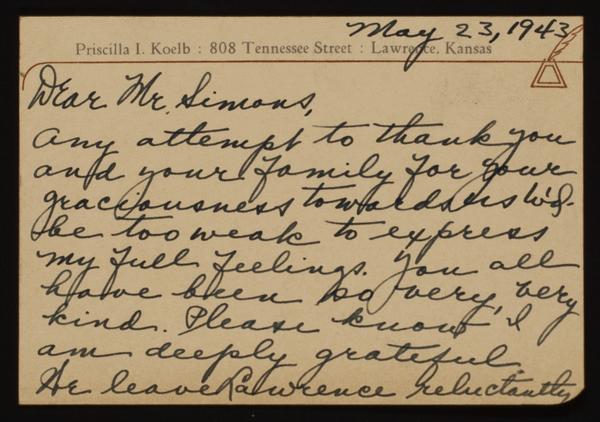 May 23, 1943
Priscilla I. Koelb : 808 Tennessee Street : Lawrence, Kansas
Dear Mr. Simons,
Any attempt to thank you
and your family for your
graciousness towards us w'd-
be too weak to express
my full feelings. You all
have been so very, very
kind. Please know I
am deeply grateful.
We leave Lawrence reluctantly